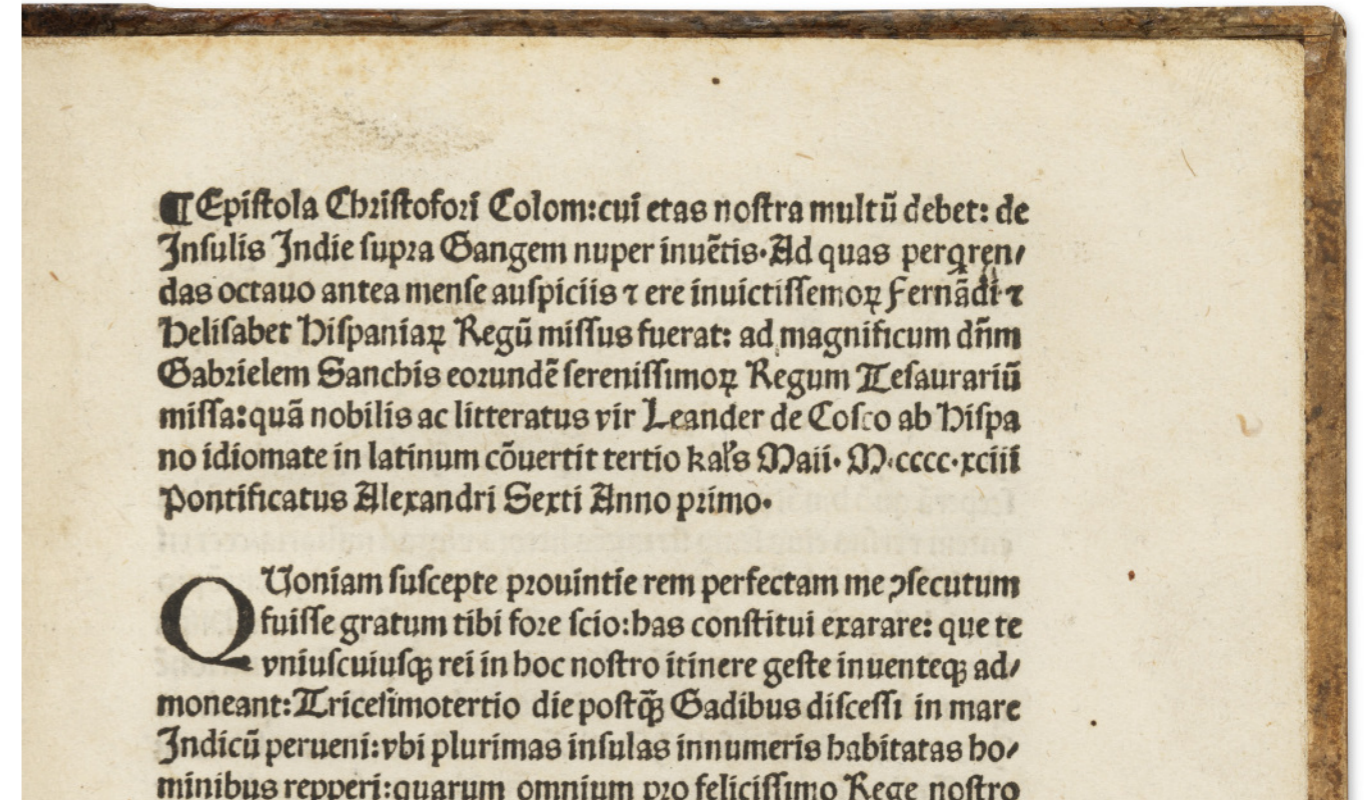 ¶Epiſtola Chꝛiſtofoꝛi Colom:cui etas noſtra multū debet: de
Inſulis Indie ſupꝛa Gangem nuper inuētis·Ad quas perqren⸗
das octauo antea menſe auſpiciis ⁊ ere inuictiſſemoꝝ Fernādi ⁊
Heliſabet Hiſpaniaꝝ Regū miſſus fuerat: ad magnificum dn̄m
Gabꝛielem Sanchis eoꝛundē ſereniſſimoꝝ Regum Teſaurariū
miſſa:quā nobilis ac litteratus vir Leander de Coſco ab Hiſpa
no idiomate in latinum cōuertit tertio kal's Maii· M·cccc·xciii
Pontificatus Alexandri Sexti Anno pꝛimo·
QUoniam ſuſcepte pꝛouintie rem perfectam me ꝯſecutum
fuiſſe gratum tibi foꝛe ſcio:has conſtitui exarare: que te
vniuſcuiuſqꝫ rei in hoc noſtro itinere geſte inuenteqꝫ ad⸗
moneant:Triceſimotertio die poſtꝙ̄ Gadibus diſceſſi in mare
Indicū perueni:vbi plurimas inſulas innumeris habitatas ho⸗
minibus repperi:quarum omnium pꝛo feliciſſimo Rege noſtro